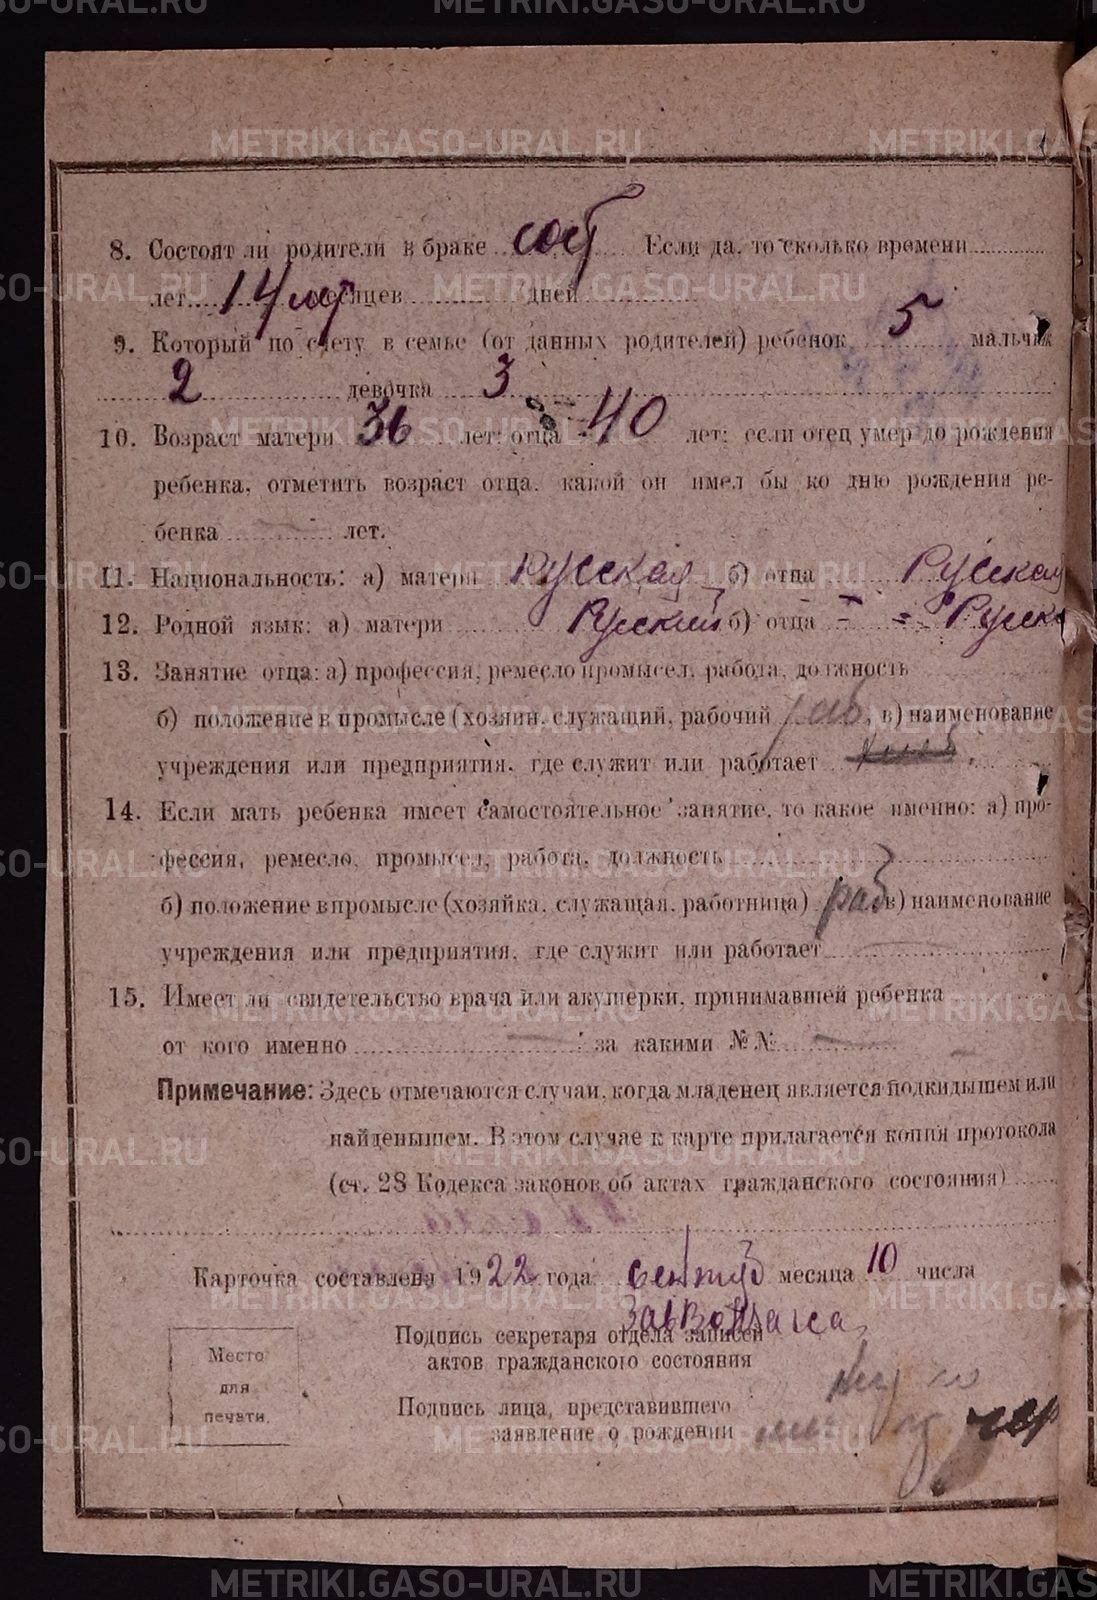 8. Состоят ли родители в браке сост Если да, то сколько времени
лет 14 лет месяцев дней
9. Который по счету в семье (от данных родителей) ребенок 5 мальчик
2 девочка 3
10. Возраст матери 36 лет: отца 40 лет: если отец умер до рождения
ребенка, отметить возраст отца, какой он имел бы ко дню рождения ре-
бенка лет.
11. Национальность: а) матери Русская б) отца Русская
12. Родной язык: а) матери Русский б) отца Русск
13. Занятие отца: а) профессия, ремесло промысел, работа, должность
б) положение в промысле (хозяин, служащий, рабочий раб, в) наименование
учреждения или предприятия, где служит или работает
14. Если мать ребенка имеет самостоятельное занятие, то какое именно: а) про-
фессия, ремесло, промысел, работа, должность
б) положение в промысле (хозяйка, служащая, работница) раб в) наименование
учреждения или предприятия, где служит или работает
15. Имеет ли свидетельство врача или акушерки, принимавшей ребенка
от кого именно за какими №№
Примечание: Здесь отмечаются случаи, когда младенец является подкидышем или
найденышем. В этом случае к карте прилагается копия протокола
(ст. 28 Кодекса законов об актах гражданского состояния)
Карточка составлена 1922 года сентяб месяца 10 числа
Подпись секретаря отдела записей
актов гражданского состояния
Подпись лица, представившего
заявление о рождении
Место
для
печати.
METRIKI.GASO-URAL.RU